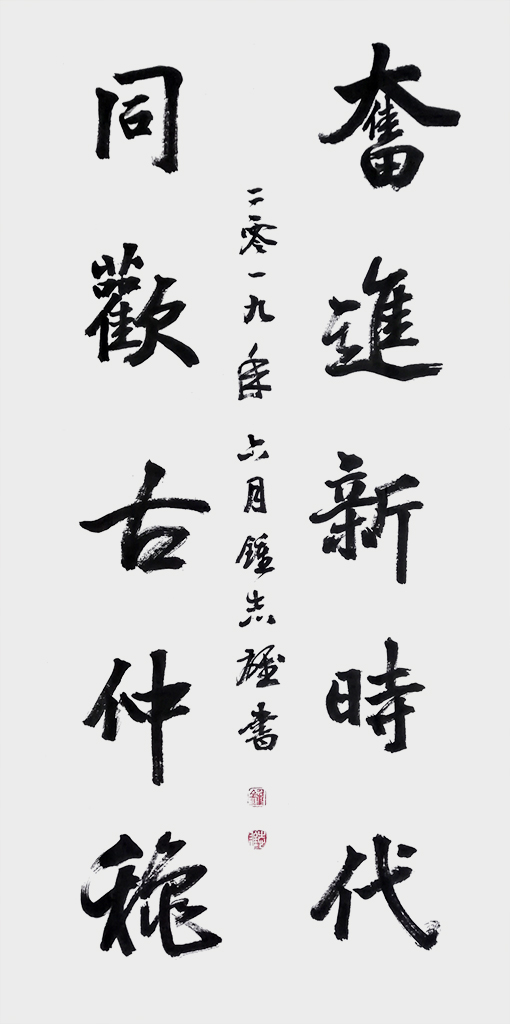 奮進新時代
同歡古仲穐
二零一九年六月鍾志雄書